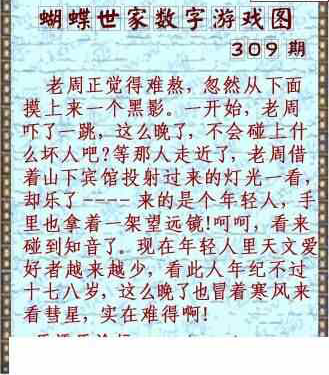 蝴蝶世家数字游戏图
309期
老周正觉得难熬，忽然从下面
摸上来一个黑影。一开始，老周
吓了一跳，这么晚了，不会碰上什
么坏人吧?等那人走近了，老周借
着山下宾馆投射过来的灯光一看，
却乐了----来的是个年轻人，手
里也拿着一架望远镜!呵呵，看来
碰到知音了。现在年轻人里天文爱
好者越来越少，看此人年纪不过
十七八岁，这么晚了也冒着寒风来
看彗星，实在难得啊!